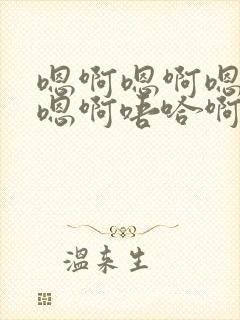 嗯啊嗯啊嗯
嗯啊唔哈啊
温来生